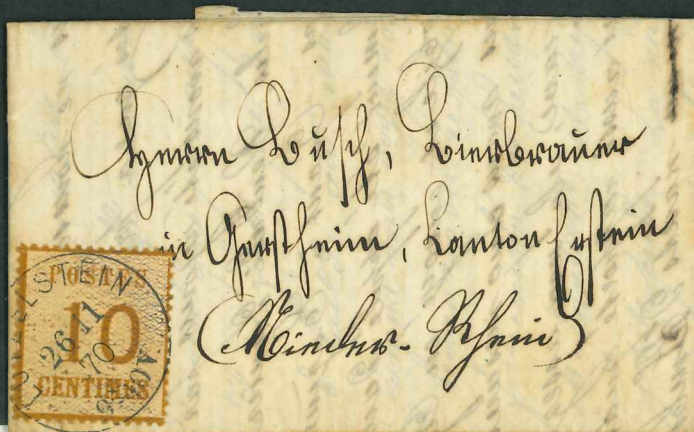 Herrn Busch, Bierbrauer
in Gerstheim, Kanton Erstein
(Nieder-Rhein)
POSTES
10
CENTIMES
26 11
70